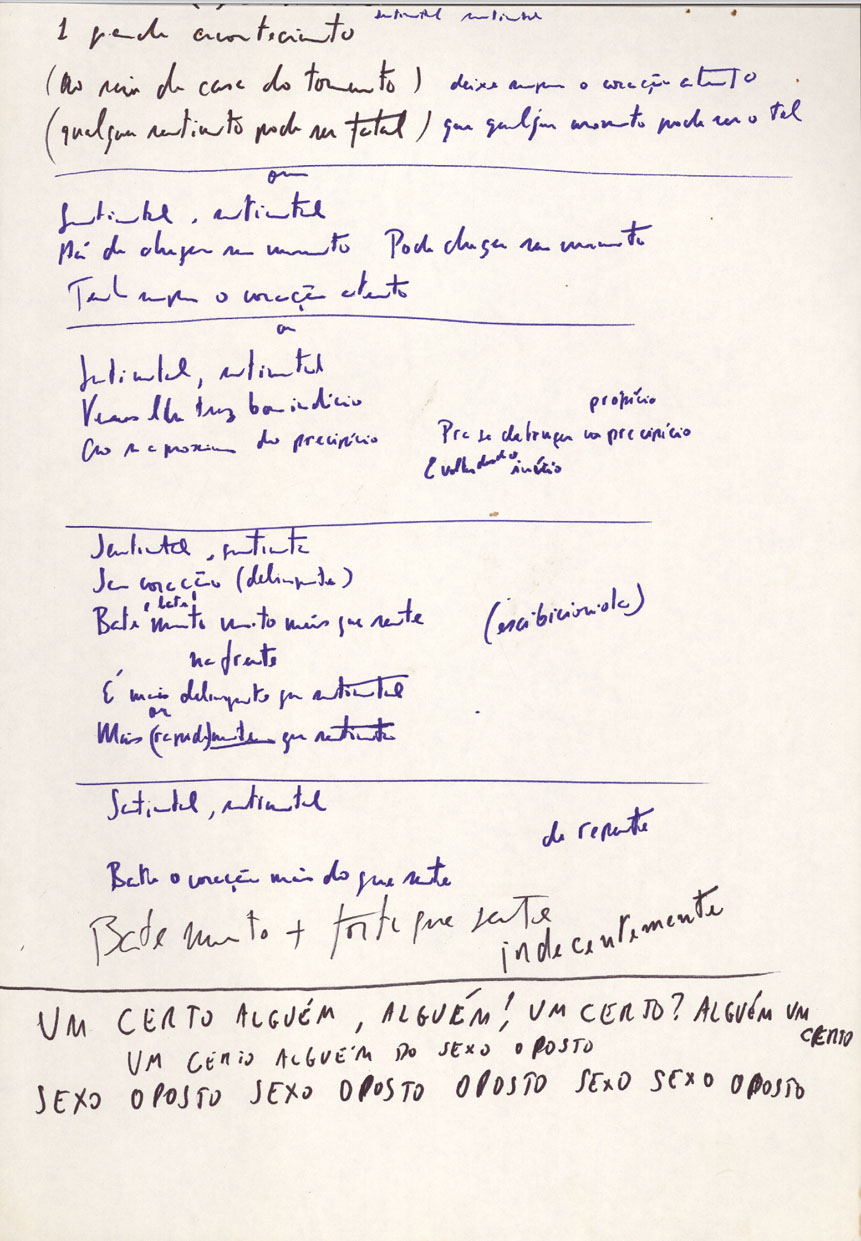 sentimental sentimental
1 grande acontecimento
(Ao sair de casa do tormento) deixe sempre o coração atento
(qualquer sentimento pode ser fatal) que qualquer momento pode ser o tal
ou
Sentimental, sentimental
Há de chegar seu momento Pode chegar seu momento
Tenha sempre o coração atento
ou
Sentimental, sentimental
Venus lhe traz bom indício
propício
Ao se aproximar do precipício Pra se debruçar no precipício
E voltar desde o início
Sentimental, sentimental
Seu coração (delinquente)
e bate!
Bate muito muito mais que sente (exibicionista)
na frente
É mais delinquente que sentimental
ou
Mais (rapida)mente que sentimento
Sentimental, sentimental
de repente
Bate o coração mais do que sente
Bate muito + forte que sente
indecentemente
UM CERTO ALGUÉM, ALGUÉM! UM CERTO? ALGUÉM UM
CERTO
UM CERTO ALGUÉM DO SEXO OPOSTO
SEXO OPOSTO SEXO OPOSTO OPOSTO SEXO SEXO OPOSTO